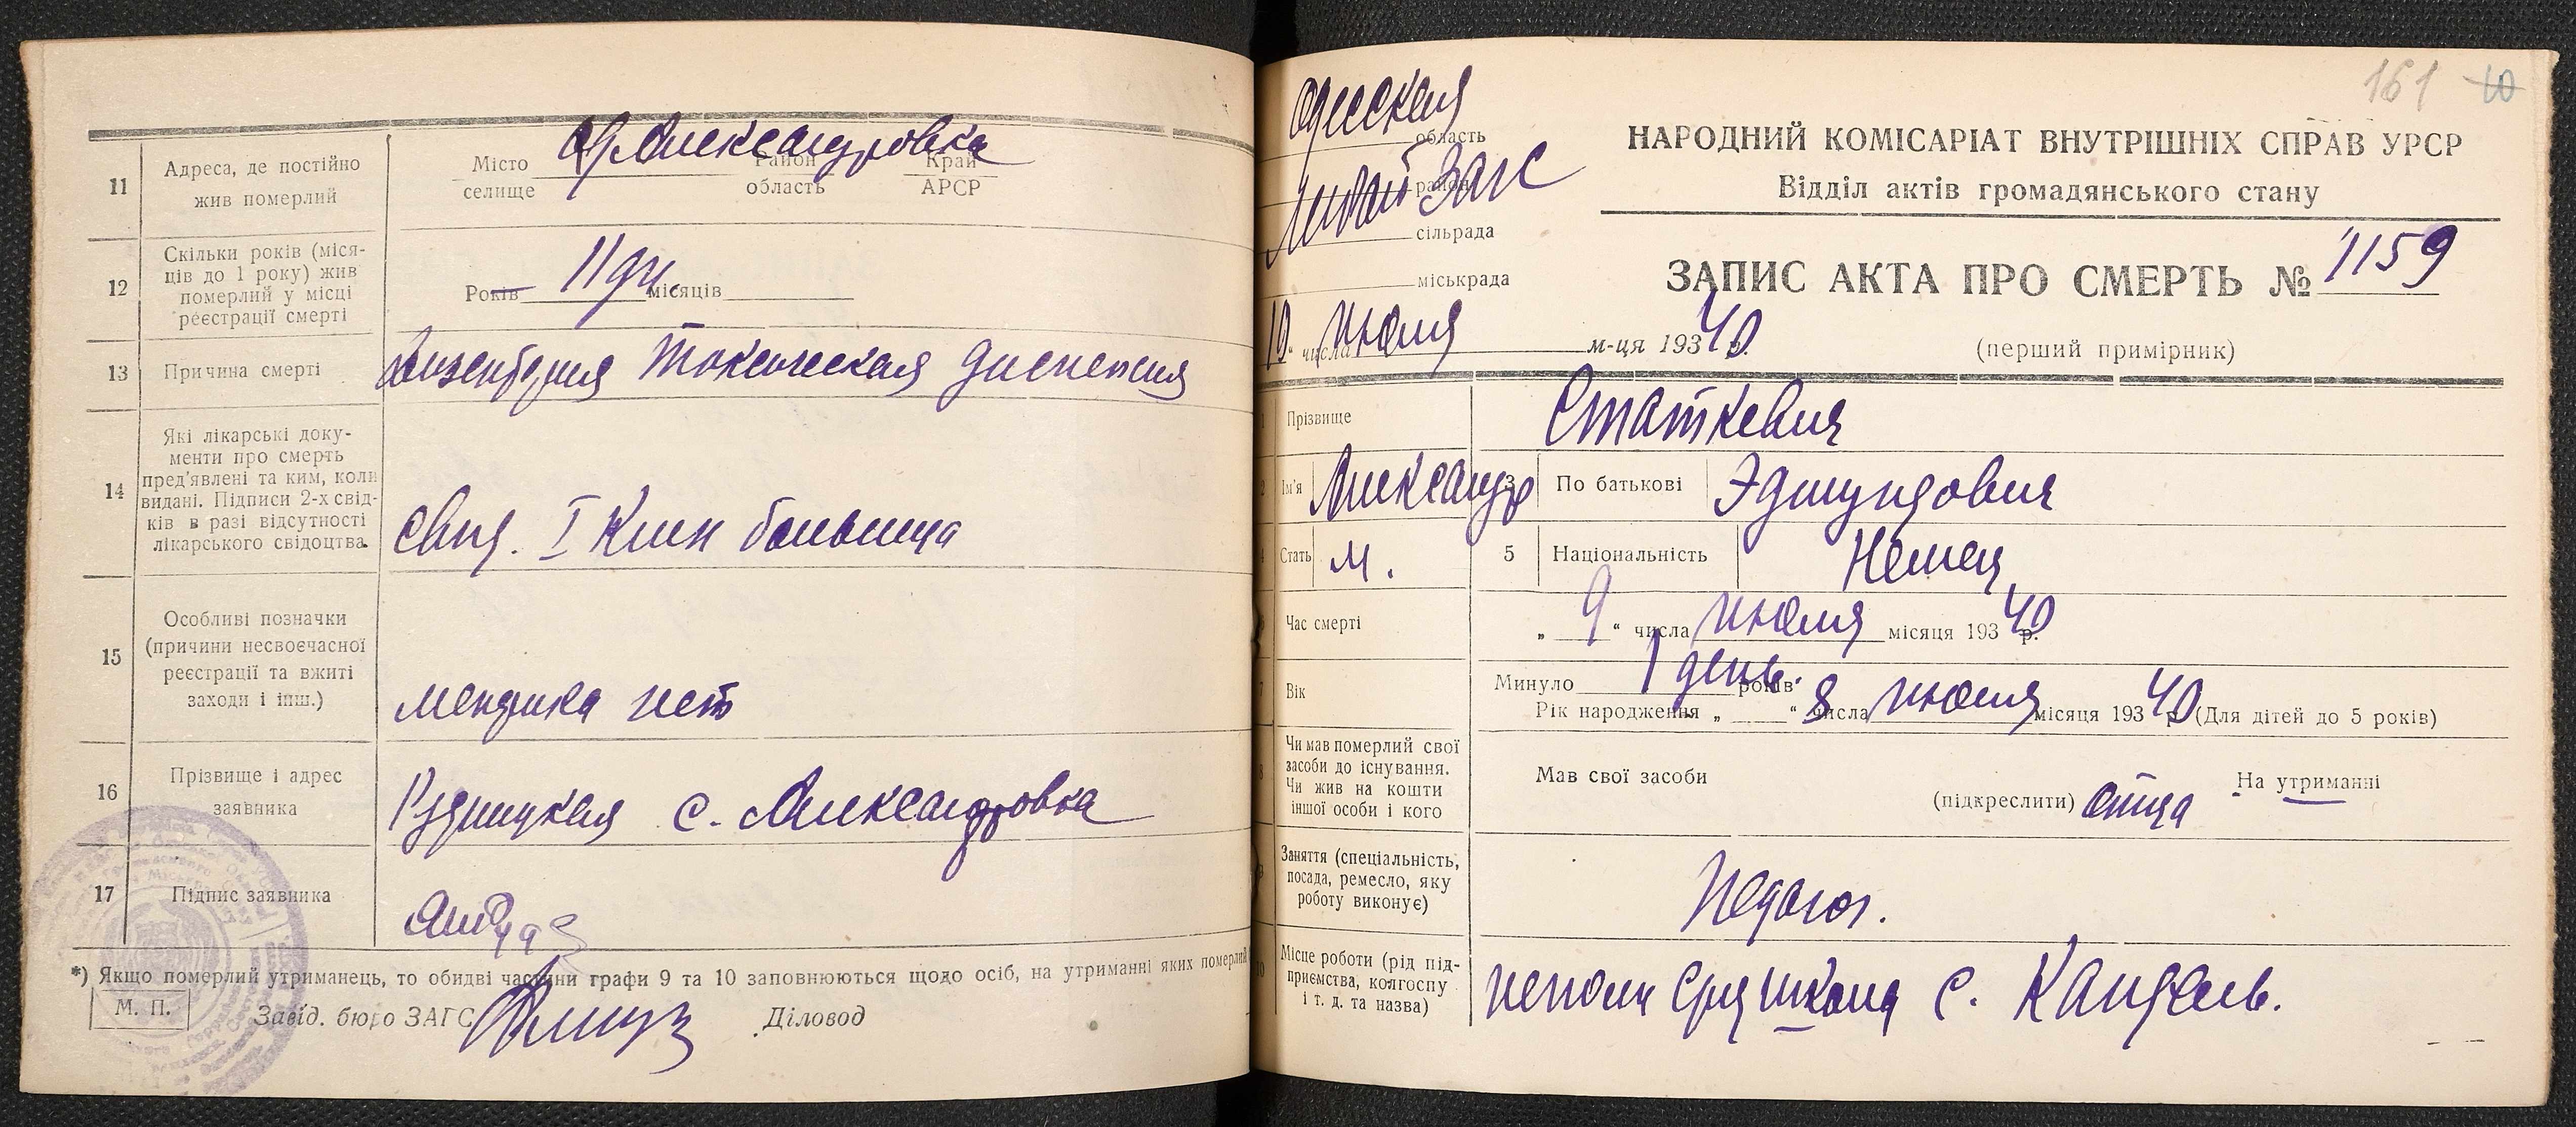 11
Адреса, де постійно
жив померлий
Александровка
Місто Район Край
селище область АРСР
12
Скільки років (міся-
ців до 1 року) жив
померлий у місці
реєстрації смерті
Років 11 дн. місяців
13
Причина смерті
Дизентерия токсическая диспепсия
14
Які лікарські доку-
менти про смерть
пред'явлені та ким, коли
видані. Підписи 2-х свід-
ків в разі відсутності
лікарського свідоцтва.
свид. I клин больница
15
Особливі позначки
(причини несвоєчасної
реєстрації та вжиті
заходи і інш.)
нет
16
Прізвище і адрес
заявника
с. Александровка
17
Підпис заявника
*) Якщо померлий утриманець, то обидві частини графи 9 та 10 заповнюються щодо осіб, на утриманні яких померлий
М. П.
Завід. бюро ЗАГС
Діловод
161 10
Одесская
область
район
Загс
сільрада
міськрада
„10“ числа июля м-ця 19340 р.
НАРОДНИЙ КОМІСАРІАТ ВНУТРІШНІХ СПРАВ УРСР
Відділ актів громадянського стану
ЗАПИС АКТА ПРО СМЕРТЬ № 1159
(перший примірник)
1 Прізвище Статкевич
2 Ім'я Александр 3 По батькові Эдмундович
4 Стать м. 5 Національність Немец
6 Час смерті „ 9 “ числа июля місяця 19340 р.
7 Вік
Минуло 1 день. років
Рік народження „ “ 8 числа июля місяця 19340 р. (Для дітей до 5 років)
8
Чи мав померлий свої
засоби до існування.
Чи жив на кошти
іншої особи і кого
Мав свої засоби
(підкреслити) отца На утриманні
9
Заняття (спеціальність,
посада, ремесло, яку
роботу виконує)
Педагог.
10
Місце роботи (рід під-
приємства, колгоспу
і т. д. та назва)
неполн сред школа с. Кандель.